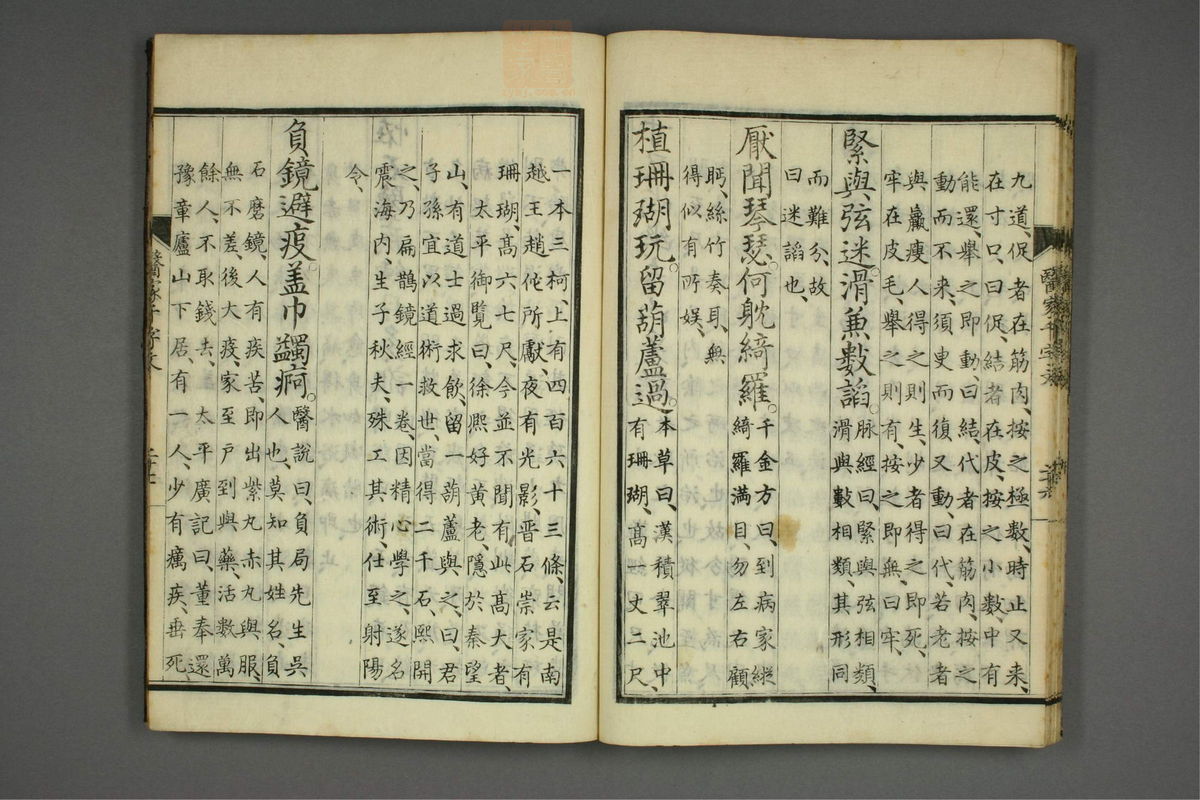 九道、促者在筋肉、按之極數、時止又来、
在寸口、曰促、結者在皮、按之小數、中有
能還、舉之即動曰結、代者在筋肉、按之
動而不来、須臾而復又動曰代、若老者
與羸瘦人得之則生、少者得之即死、
牢在皮毛、舉之則有、按之即無、曰牢、
緊與弦迷。滑兼數謟。脉經曰、緊與弦相類、
滑與數相類、其形同
而難分、故
曰迷謟也、
厭聞琴瑟。何躭綺羅。千金方曰、到病家縦
綺羅满目、勿左右顧
眄、絲竹奏耳、無
得似有所娱、
植珊瑚玩。留葫蘆過。本草曰、漢積翠池中、
有珊瑚、髙一丈二尺、
一本三柯、上有四百六十三條、云是南
越王趙佗所獻、夜有光影、晋石崇家有
珊瑚、髙六七尺、今並不聞有此髙大者、
太平御覧曰、徐熈好黄老、隱於秦望
山、有道士過求飲、留一葫蘆與之、曰、君
子孫宜以道術救世、當得二千石、熈開
之、乃扁鵲鏡經一卷、因精心學之、遂名
震海内、生子秋夫、殊工其術、仕至射陽
令、
負鏡避疫。盖巾蠲痾。醫說曰、負局先生、吳
人也、莫知其姓名、負
石磨鏡、人有疾苦、即出紫丸赤丸與服、
無不差、後大疫、家至户到與藥、活數萬
餘人、不取錢去、太平廣記曰、董奉還
豫章廬山下居、有一人、少有癘疾、垂死